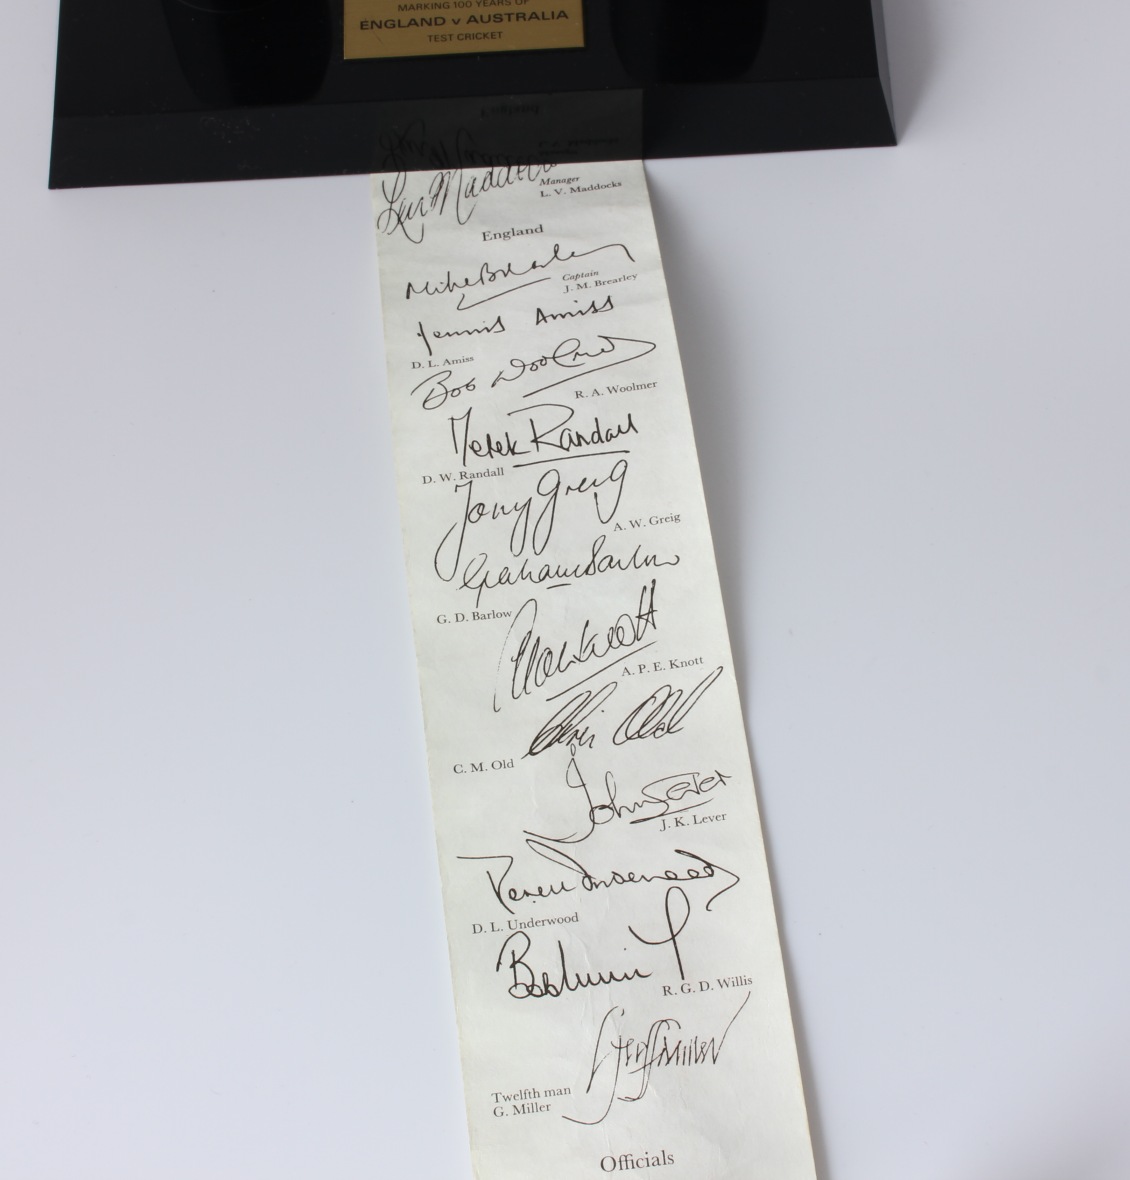 MARKING 100 YEARS OF
ENGLAND v AUSTRALIA
TEST CRICKET
Manager
L. V. Maddocks
England
Mike Brearley
Captain
J. M. Brearley
Dennis Amiss
D. L. Amiss
Bob Woolmer
R. A. Woolmer
Derek Randall
D. W. Randall
Tony Greig
A. W. Greig
Graham Barlow
G. D. Barlow
Alan Knott
A. P. E. Knott
Chris Old
C. M. Old
John Lever
J. K. Lever
Derek Underwood
D. L. Underwood
Bob Willis
R. G. D. Willis
Geoff Miller
Twelfth man
G. Miller
Officials